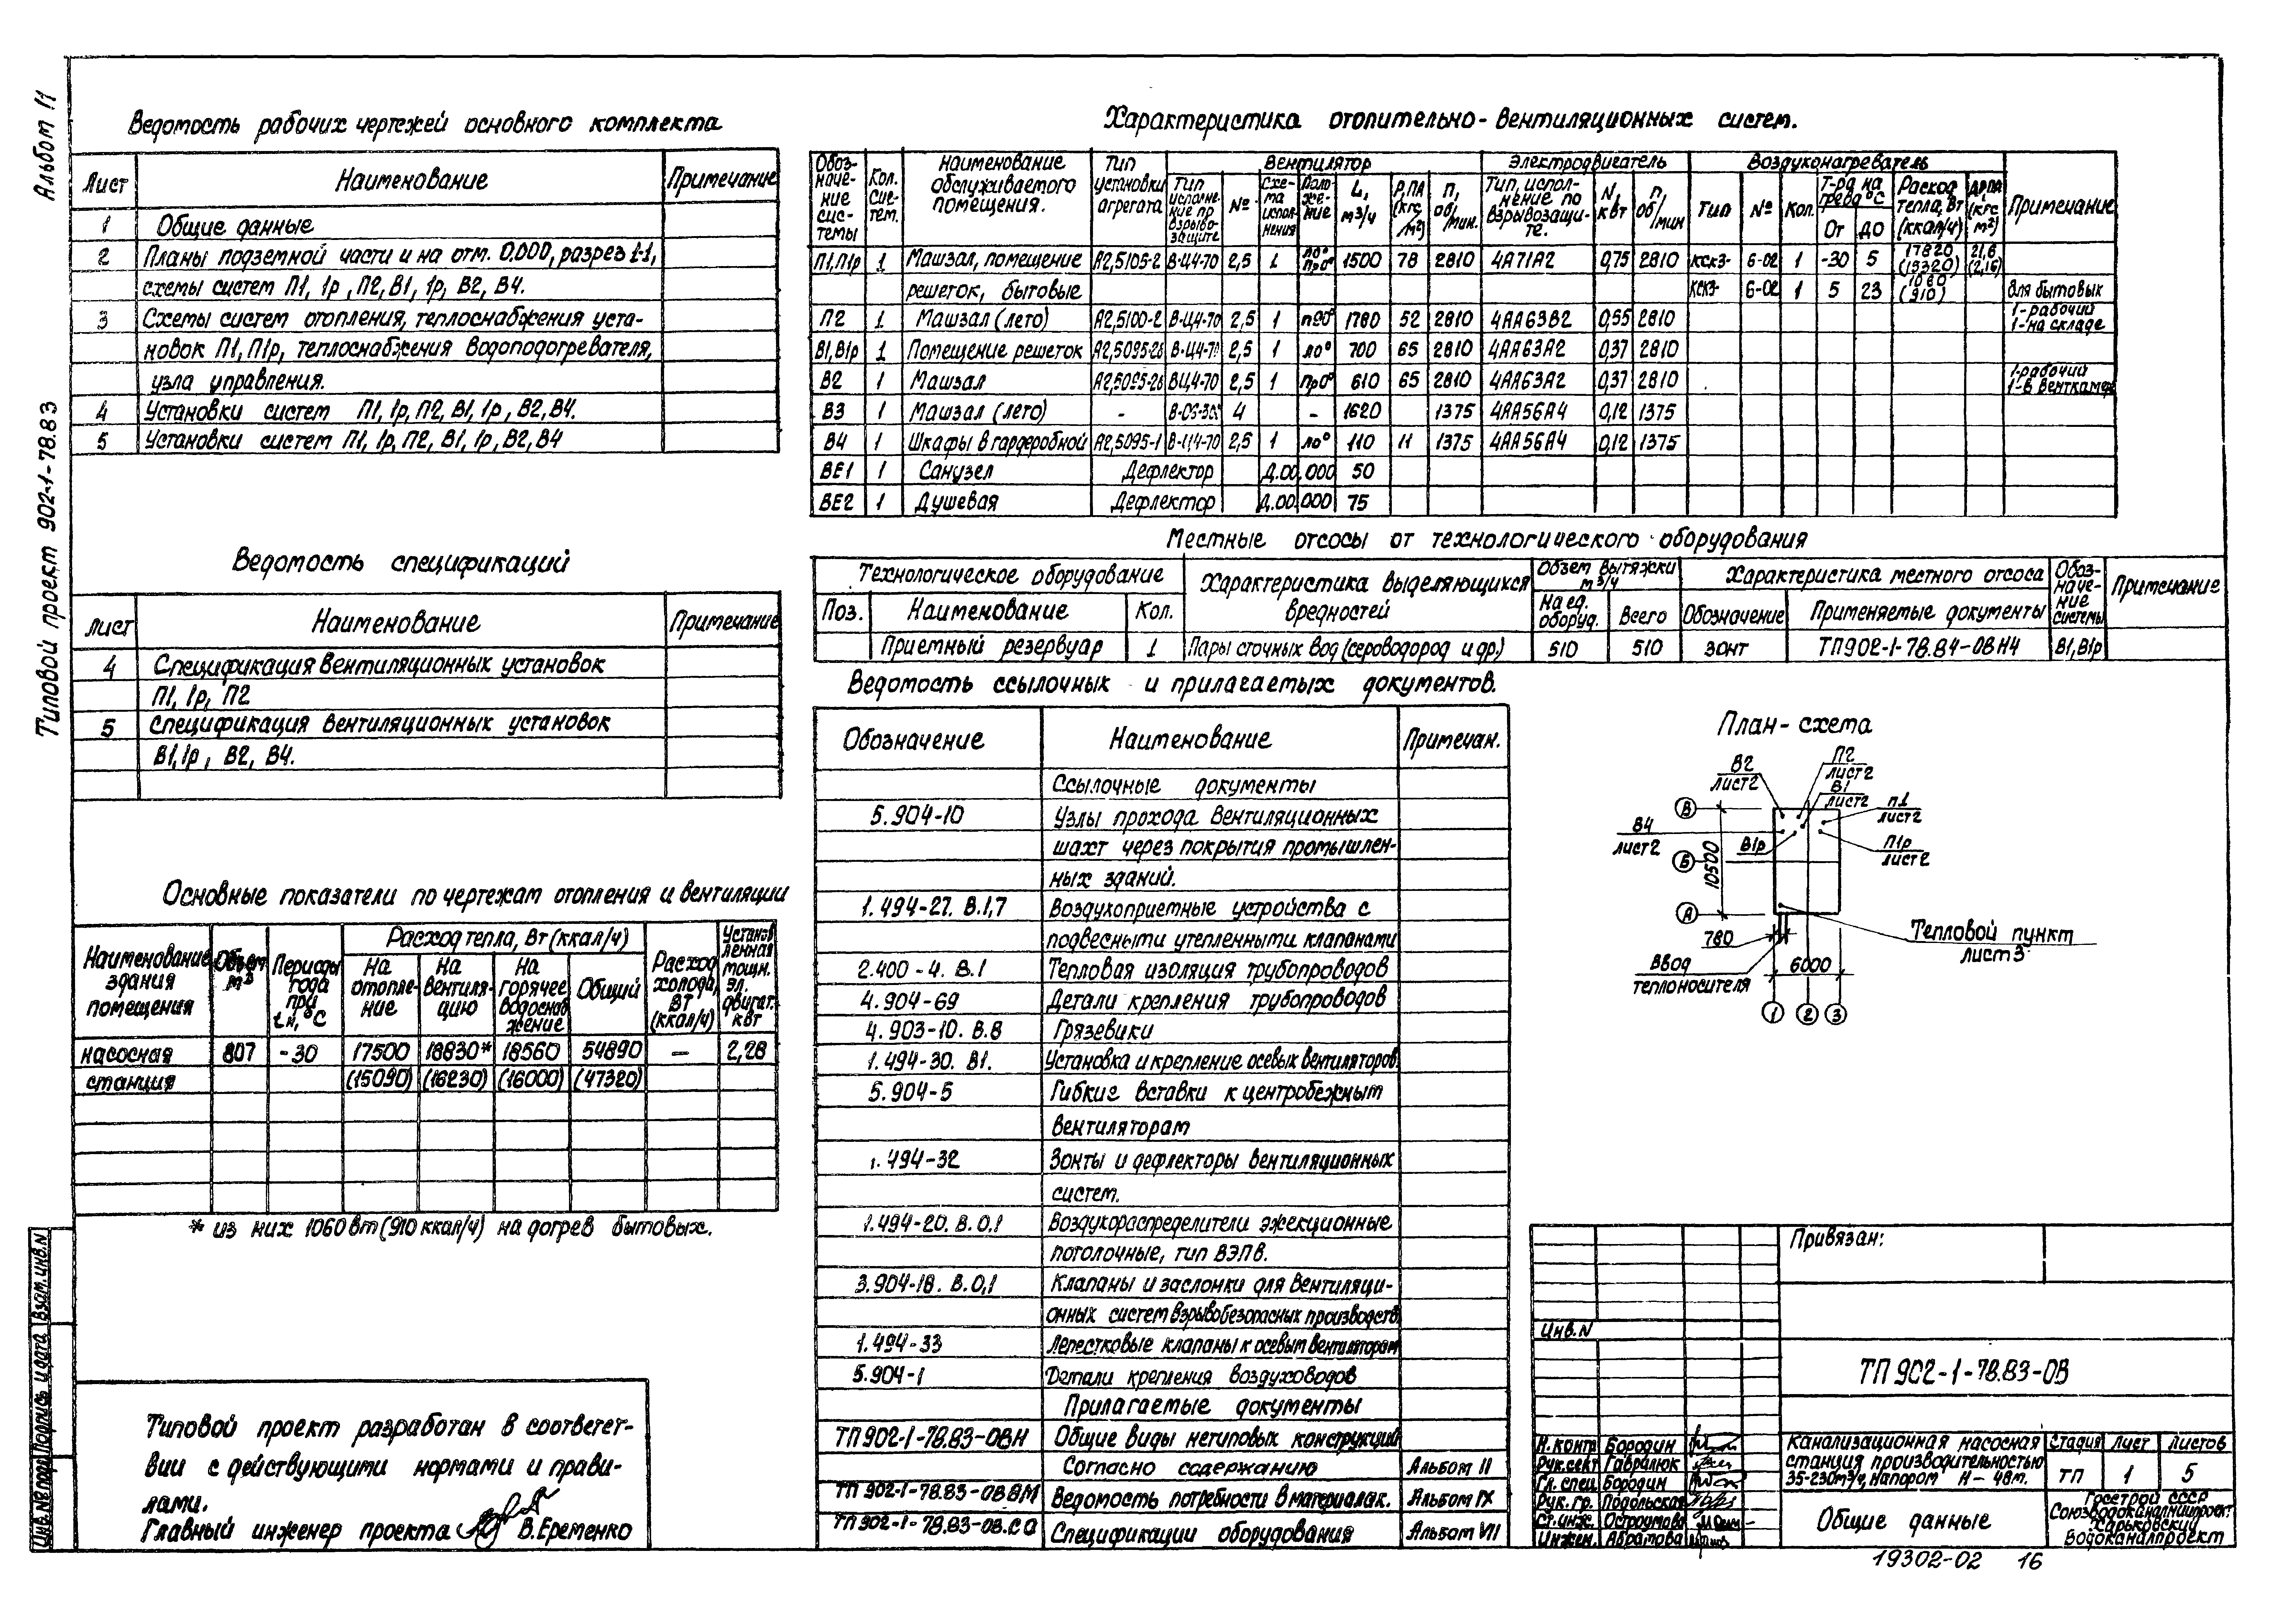 Альбом II
Типовой проект 902-1-78.83
Ведомость рабочих чертежей основного комплекта
Лист Наименование Примечание
1 Общие данные
2 Планы подземной части и на отм. 0.000, разрез 1-1,
схемы систем П1, 1р, П2, В1, 1р, В2, В4.
3 Схемы систем отопления, теплоснабжения уста-
новок П1, П1р, теплоснабжения водоподогревателя,
узла управления.
4 Установки систем П1, 1р, П2, В1, 1р, В2, В4.
5 Установки систем П1, 1р, П2, В1, 1р, В2, В4
Ведомость спецификаций
Лист Наименование Примечание
4 Спецификация вентиляционных установок
П1, 1р, П2
5 Спецификация вентиляционных установок
В1, 1р, В2, В4.
Основные показатели по чертежам отопления и вентиляции
Наименование здания помещения Объем м³ Периоды года при tн, °С Расход тепла, Вт (ккал/ч) Расход холода, Вт (ккал/ч) Установленная мощн. эл. двигат. кВт
На отопле-ние На вентиля-цию На горячее водоснабжение Общий
насосная 807 -30 17500 18830* 18560 54890 — 2,28
станция (15090) (16230) (16000) (47320)
* из них 1060 вт (910 ккал/ч) на догрев бытовых.
Типовой проект разработан в соответст-
вии с действующими нормами и прави-
лами.
Главный инженер проекта В. Еременко
Взам. инв. N
Подпись и дата
Инв. № подл.
Характеристика отопительно-вентиляционных систем.
Обоз-наче-ние сис-темы Кол. сис-тем. Наименование обслуживаемого помещения. Тип установки агрегата Вентилятор Электродвигатель Воздухонагреватель Примечание
Тип исполне-ние по взрыво-защите № Схе-ма испол-нения Поло-же-ние L, м³/ч Р, ПА (кгс/м²) П, об/мин. Тип, испол-нение по взрывозащи-те. N, кВт П, об/мин Тип № Кол. Т-ра нагрева °С От до Расход тепла, Вт (ккал/ч) ΔР, ПА (кгс/м²)
П1, П1р 1 Машзал, помещение А2,5105-2 В-Ц4-70 2,5 1 Л0° Пр0° 1500 78 2810 4А71А2 0,75 2810 КСК3- 6-02 1 -30 5 17820 (15320) 21,6 (2,16)
решеток, бытовые КСК3- 6-02 1 5 23 1060 (910) Для бытовых
П2 1 Машзал (лето) А2,5100-2 В-Ц4-70 2,5 1 П90° 1780 52 2810 4АА63В2 0,55 2810 1-рабочий 1-на складе
В1, В1р 1 Помещение решеток А2,5095-2б В-Ц4-70 2,5 1 Л0° 700 65 2810 4АА63А2 0,37 2810
В2 1 Машзал А2,5095-2б ВЦ4-70 2,5 1 Пр0° 610 65 2810 4АА63А2 0,37 2810 1-рабочий 1-в венткамере
В3 1 Машзал (лето) - В-06-300 4 - 1620 1375 4АА56А4 0,12 1375
В4 1 Шкафы в гардеробной А2,5095-1 В-Ц4-70 2,5 1 Л0° 110 11 1375 4АА56А4 0,12 1375
ВЕ1 1 Санузел Дефлектор Д.00.000 50
ВЕ2 1 Душевая Дефлектор Д.00.000 75
Местные отсосы от технологического оборудования
Технологическое оборудование Характеристика выделяющихся вредностей Объем вытяжки м³/ч Характеристика местного отсоса Обоз-наче-ние системы Примечание
Поз. Наименование Кол. На ед. оборуд. Всего Обозначение Применяемые документы
Приемный резервуар 1 Пары сточных вод (сероводород и др.) 510 510 Зонт ТП902-1-78.84-ОВН4 В1, В1р
Ведомость ссылочных и прилагаемых документов.
Обозначение Наименование Примечан.
Ссылочные документы
5.904-10 Узлы прохода вентиляционных
шахт через покрытия промышлен-
ных зданий.
1.494-27. В.1,7 Воздухоприемные устройства с
подвесными утепленными клапанами
2.400-4. В.1 Тепловая изоляция трубопроводов
4.904-69 Детали крепления трубопроводов
4.903-10. В.8 Грязевики
1.494-30. В1. Установка и крепление осевых вентиляторов.
5.904-5 Гибкие вставки к центробежным
вентиляторам
1.494-32 Зонты и дефлекторы вентиляционных
систем.
1.494-20. В.0,1 Воздухораспределители эжекционные
потолочные, тип ВЭПВ.
3.904-18. В.0,1 Клапаны и заслонки для вентиляци-
онных систем взрывобезопасных производств
1.494-33 Лепестковые клапаны к осевым вентиляторам
5.904-1 Детали крепления воздуховодов
Прилагаемые документы
ТП902-1-78.83-ОВН Общие виды нетиповых конструкций
Согласно содержанию Альбом II
ТП 902-1-78.83-ОВВМ Ведомость потребности в материалах. Альбом IX
ТП902-1-78.83-ОВ.СО Спецификации оборудования Альбом VII
План-схема
В2 лист2
П2 лист2
В1 лист2
П1 лист2
В4 лист2
В1р
П1р лист2
В
Б
А
10500
780
6000
Ввод теплоносителя
Тепловой пункт
лист3
1 2 3
Привязан:
Инв. N
ТП 902-1-78.83-ОВ
Н. контр Бородин
Рук. сект Гаврилюк
Гл. спец Бородин
Рук. гр. Подольская
Ст. инж. Остроумова
Инжен. Абрамова
Канализационная насосная
станция производительностью
35-230м³/ч, напором Н-48м.
Стадия Лист Листов
ТП 1 5
Общие данные
Госстрой СССР
Союзводоканалниипроект
Харьковский
Водоканалпроект
19302-02 16